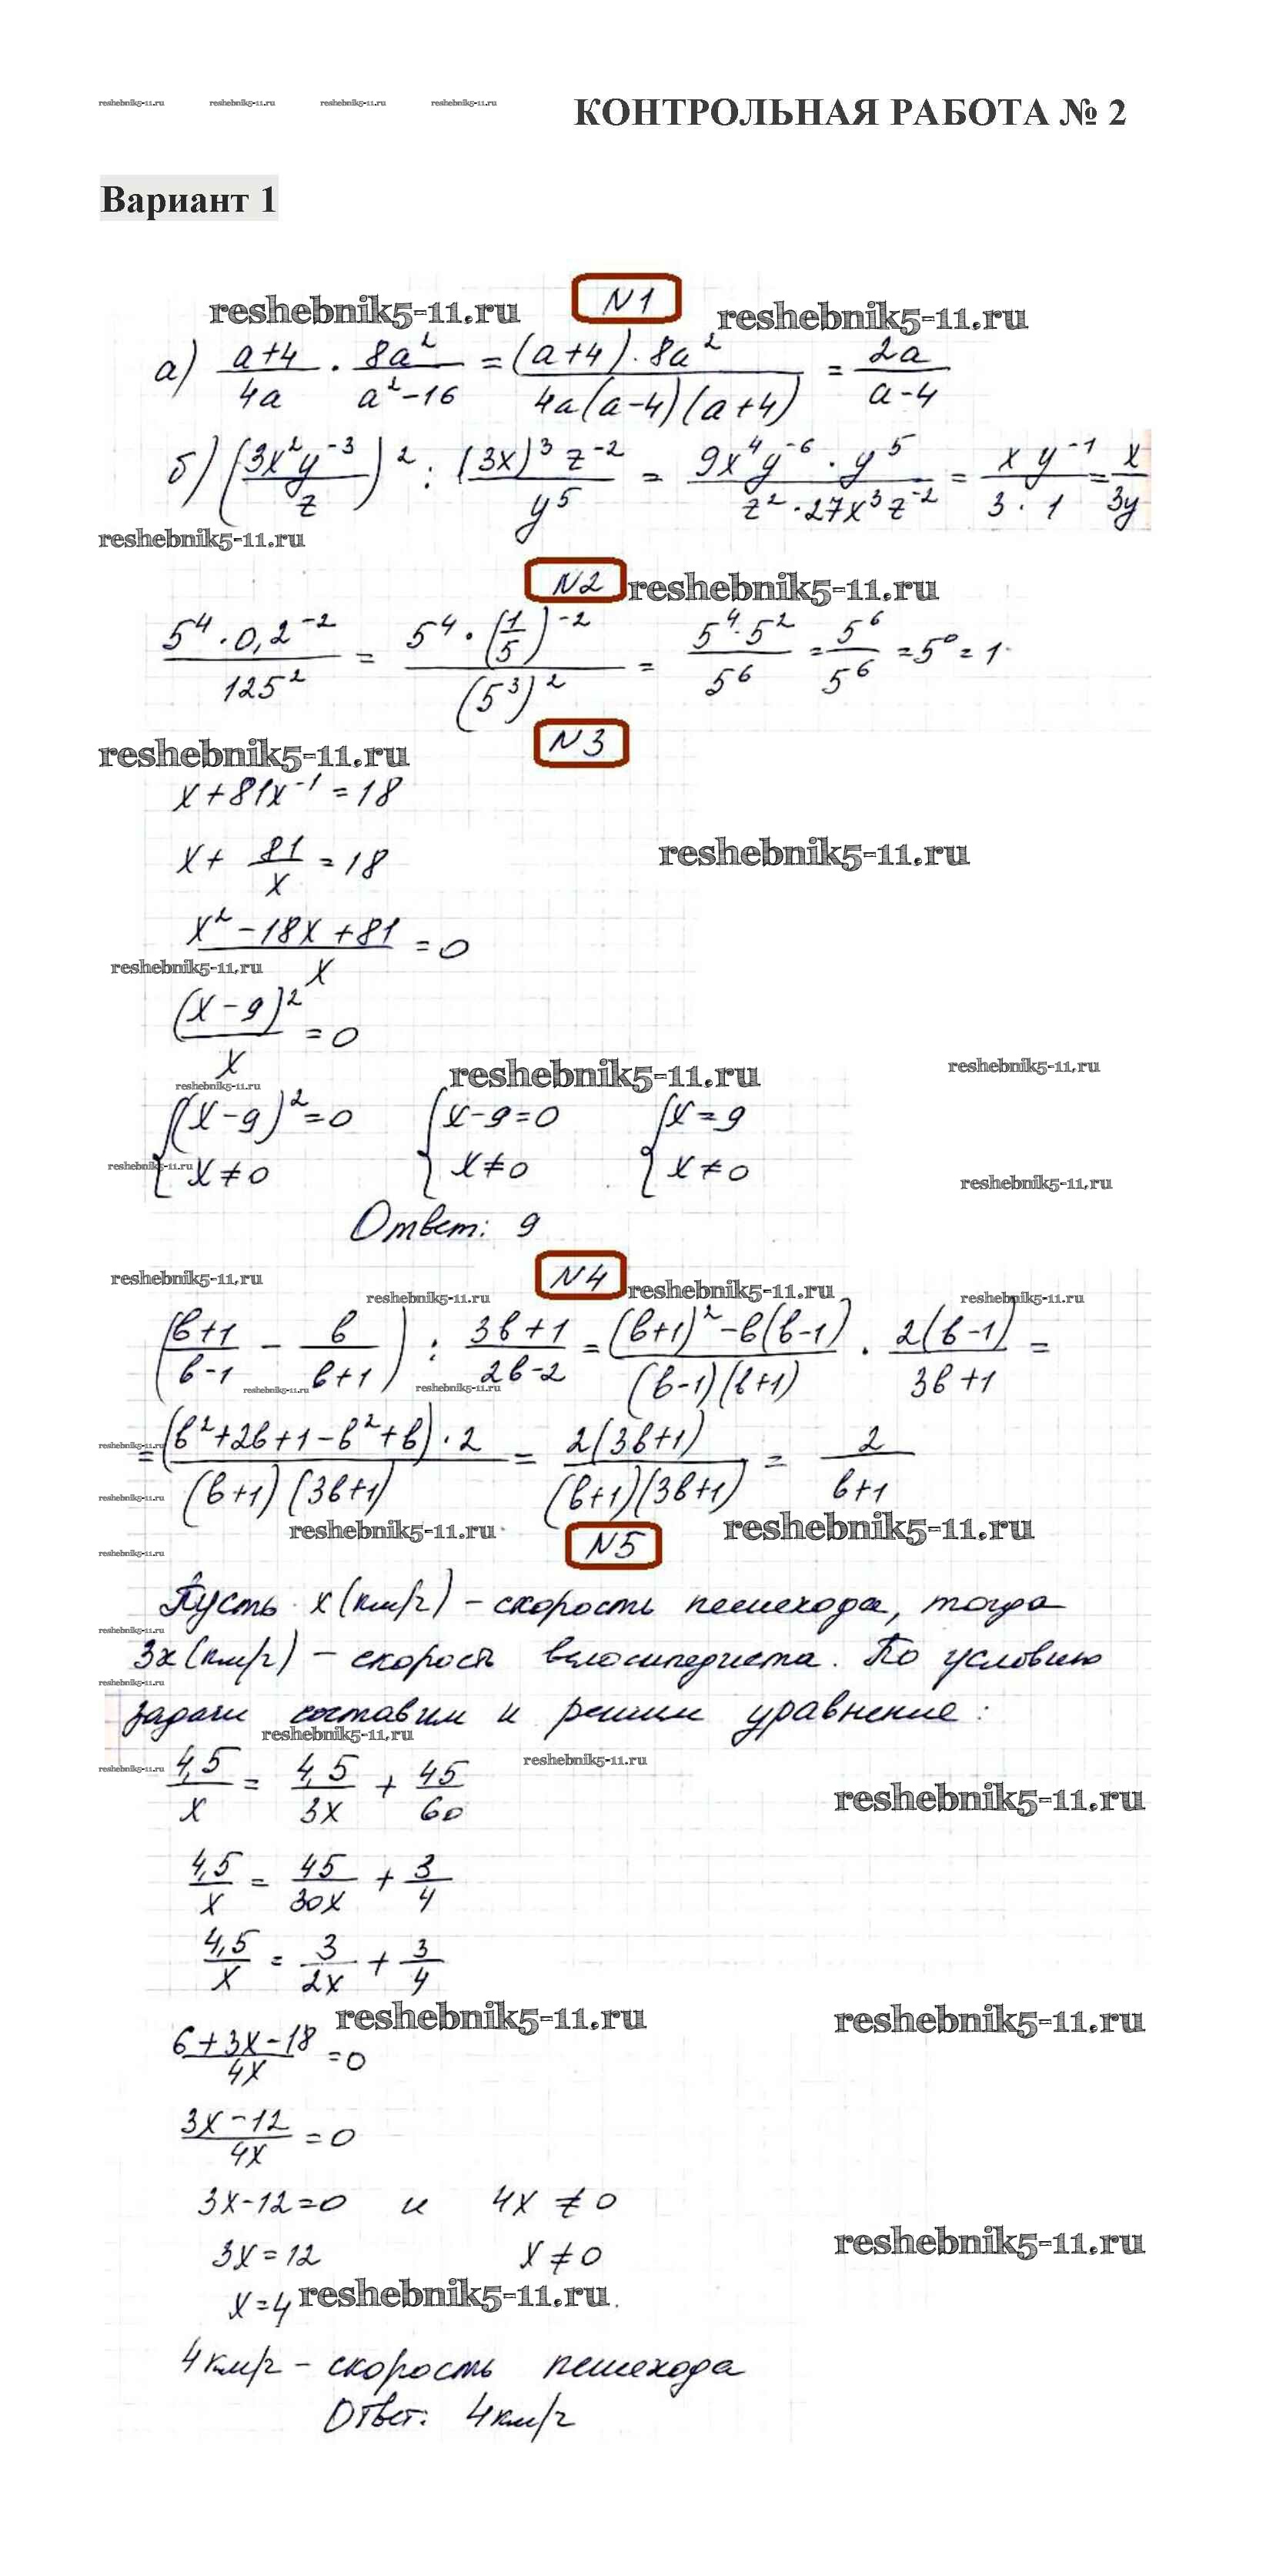 reshebnik5-11.ru reshebnik5-11.ru reshebnik5-11.ru reshebnik5-11.ru
КОНТРОЛЬНАЯ РАБОТА № 2
Вариант 1
N1
reshebnik5-11.ru reshebnik5-11.ru
а) (a+4)/(4a) · (8a²)/(a²-16) = ((a+4)·8a²)/(4a(a-4)(a+4)) = 2a/(a-4)
б) ((3x²y⁻³)/z)² : ((3x)³z⁻²)/y⁵ = (9x⁴y⁻⁶·y⁵)/(z²·27x³z⁻²) = (xy⁻¹)/(3·1) = x/(3y)
reshebnik5-11.ru
N2 reshebnik5-11.ru
(5⁴·0,2⁻²)/125² = (5⁴·(1/5)⁻²)/(5³)² = (5⁴·5²)/5⁶ = 5⁶/5⁶ = 5⁰ = 1
N3
reshebnik5-11.ru
x+81x⁻¹=18
x+ 81/x =18
reshebnik5-11.ru
(x²-18x+81)/x = 0
reshebnik5-11.ru
(x-9)²/x = 0
reshebnik5-11.ru reshebnik5-11.ru
reshebnik5-11.ru
{(x-9)²=0 {x-9=0 {x=9
x≠0 x≠0 x≠0
reshebnik5-11.ru reshebnik5-11.ru
Ответ: 9
N4
reshebnik5-11.ru reshebnik5-11.ru reshebnik5-11.ru reshebnik5-11.ru
((в+1)/(в-1) - в/(в+1)) : (3в+1)/(2в-2) = ((в+1)²-в(в-1))/((в-1)(в+1)) · 2(в-1)/(3в+1) =
reshebnik5-11.ru reshebnik5-11.ru
reshebnik5-11.ru
= ((в²+2в+1-в²+в)·2)/((в+1)(3в+1)) = 2(3в+1)/((в+1)(3в+1)) = 2/(в+1)
reshebnik5-11.ru
reshebnik5-11.ru reshebnik5-11.ru
N5
reshebnik5-11.ru
Пусть x(км/ч) – скорость пешехода, тогда
reshebnik5-11.ru
3x(км/ч) – скорость велосипедиста. По условию
reshebnik5-11.ru
задачи составим и решим уравнение:
reshebnik5-11.ru
reshebnik5-11.ru reshebnik5-11.ru
4,5/x = 4,5/3x + 45/60
reshebnik5-11.ru
4,5/x = 45/30x + 3/4
4,5/x = 3/2x + 3/4
reshebnik5-11.ru reshebnik5-11.ru
(6+3x-18)/4x = 0
(3x-12)/4x = 0
3x-12=0 и 4x≠0
reshebnik5-11.ru
3x=12 x≠0
x=4 reshebnik5-11.ru
4км/ч – скорость пешехода
Ответ: 4км/ч